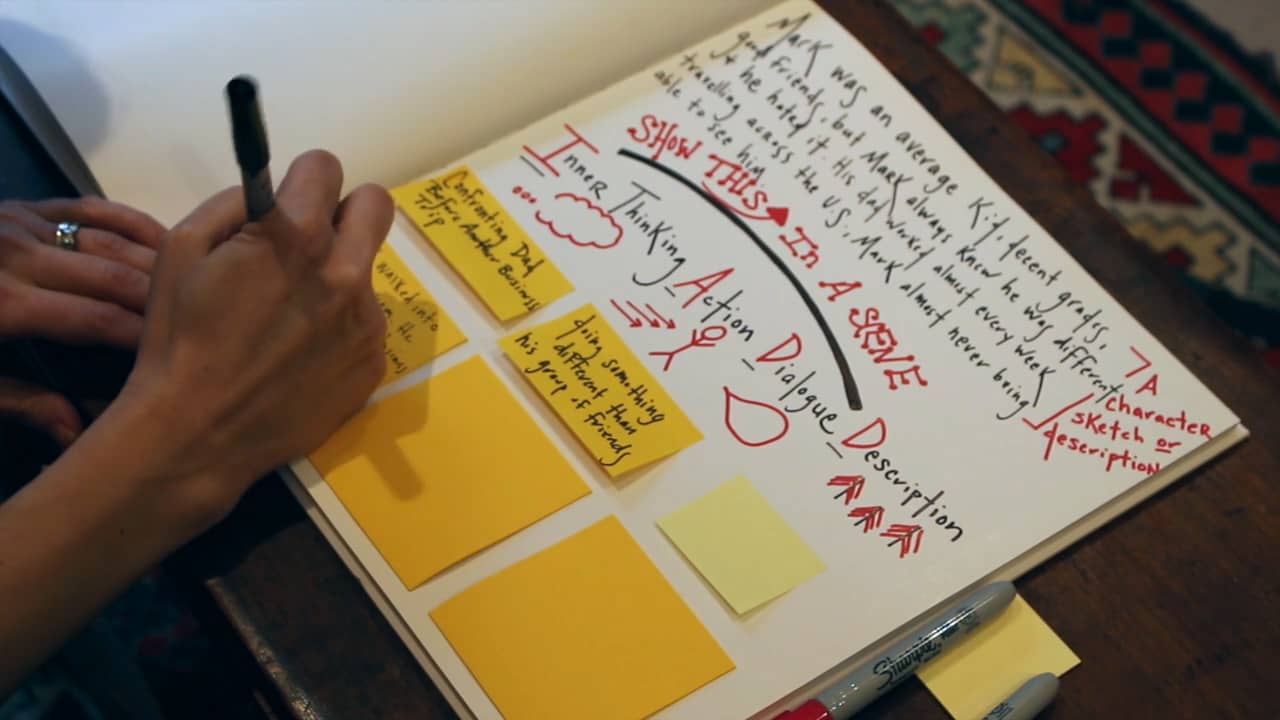 Mark was an average Kid, decent grades,
good friends, but Mark always knew he was different
& he hated it. His dad worked almost every week
travelling across the U.S. Mark almost never being
able to see him
7 A
character
sketch or
description
SHOW THIS IN A SCENE
Inner Thinking Action Dialogue Description
Confronting Dad
Before Another Business
Trip
walked into
the
doing something
different than
his group of friends
Sharpie